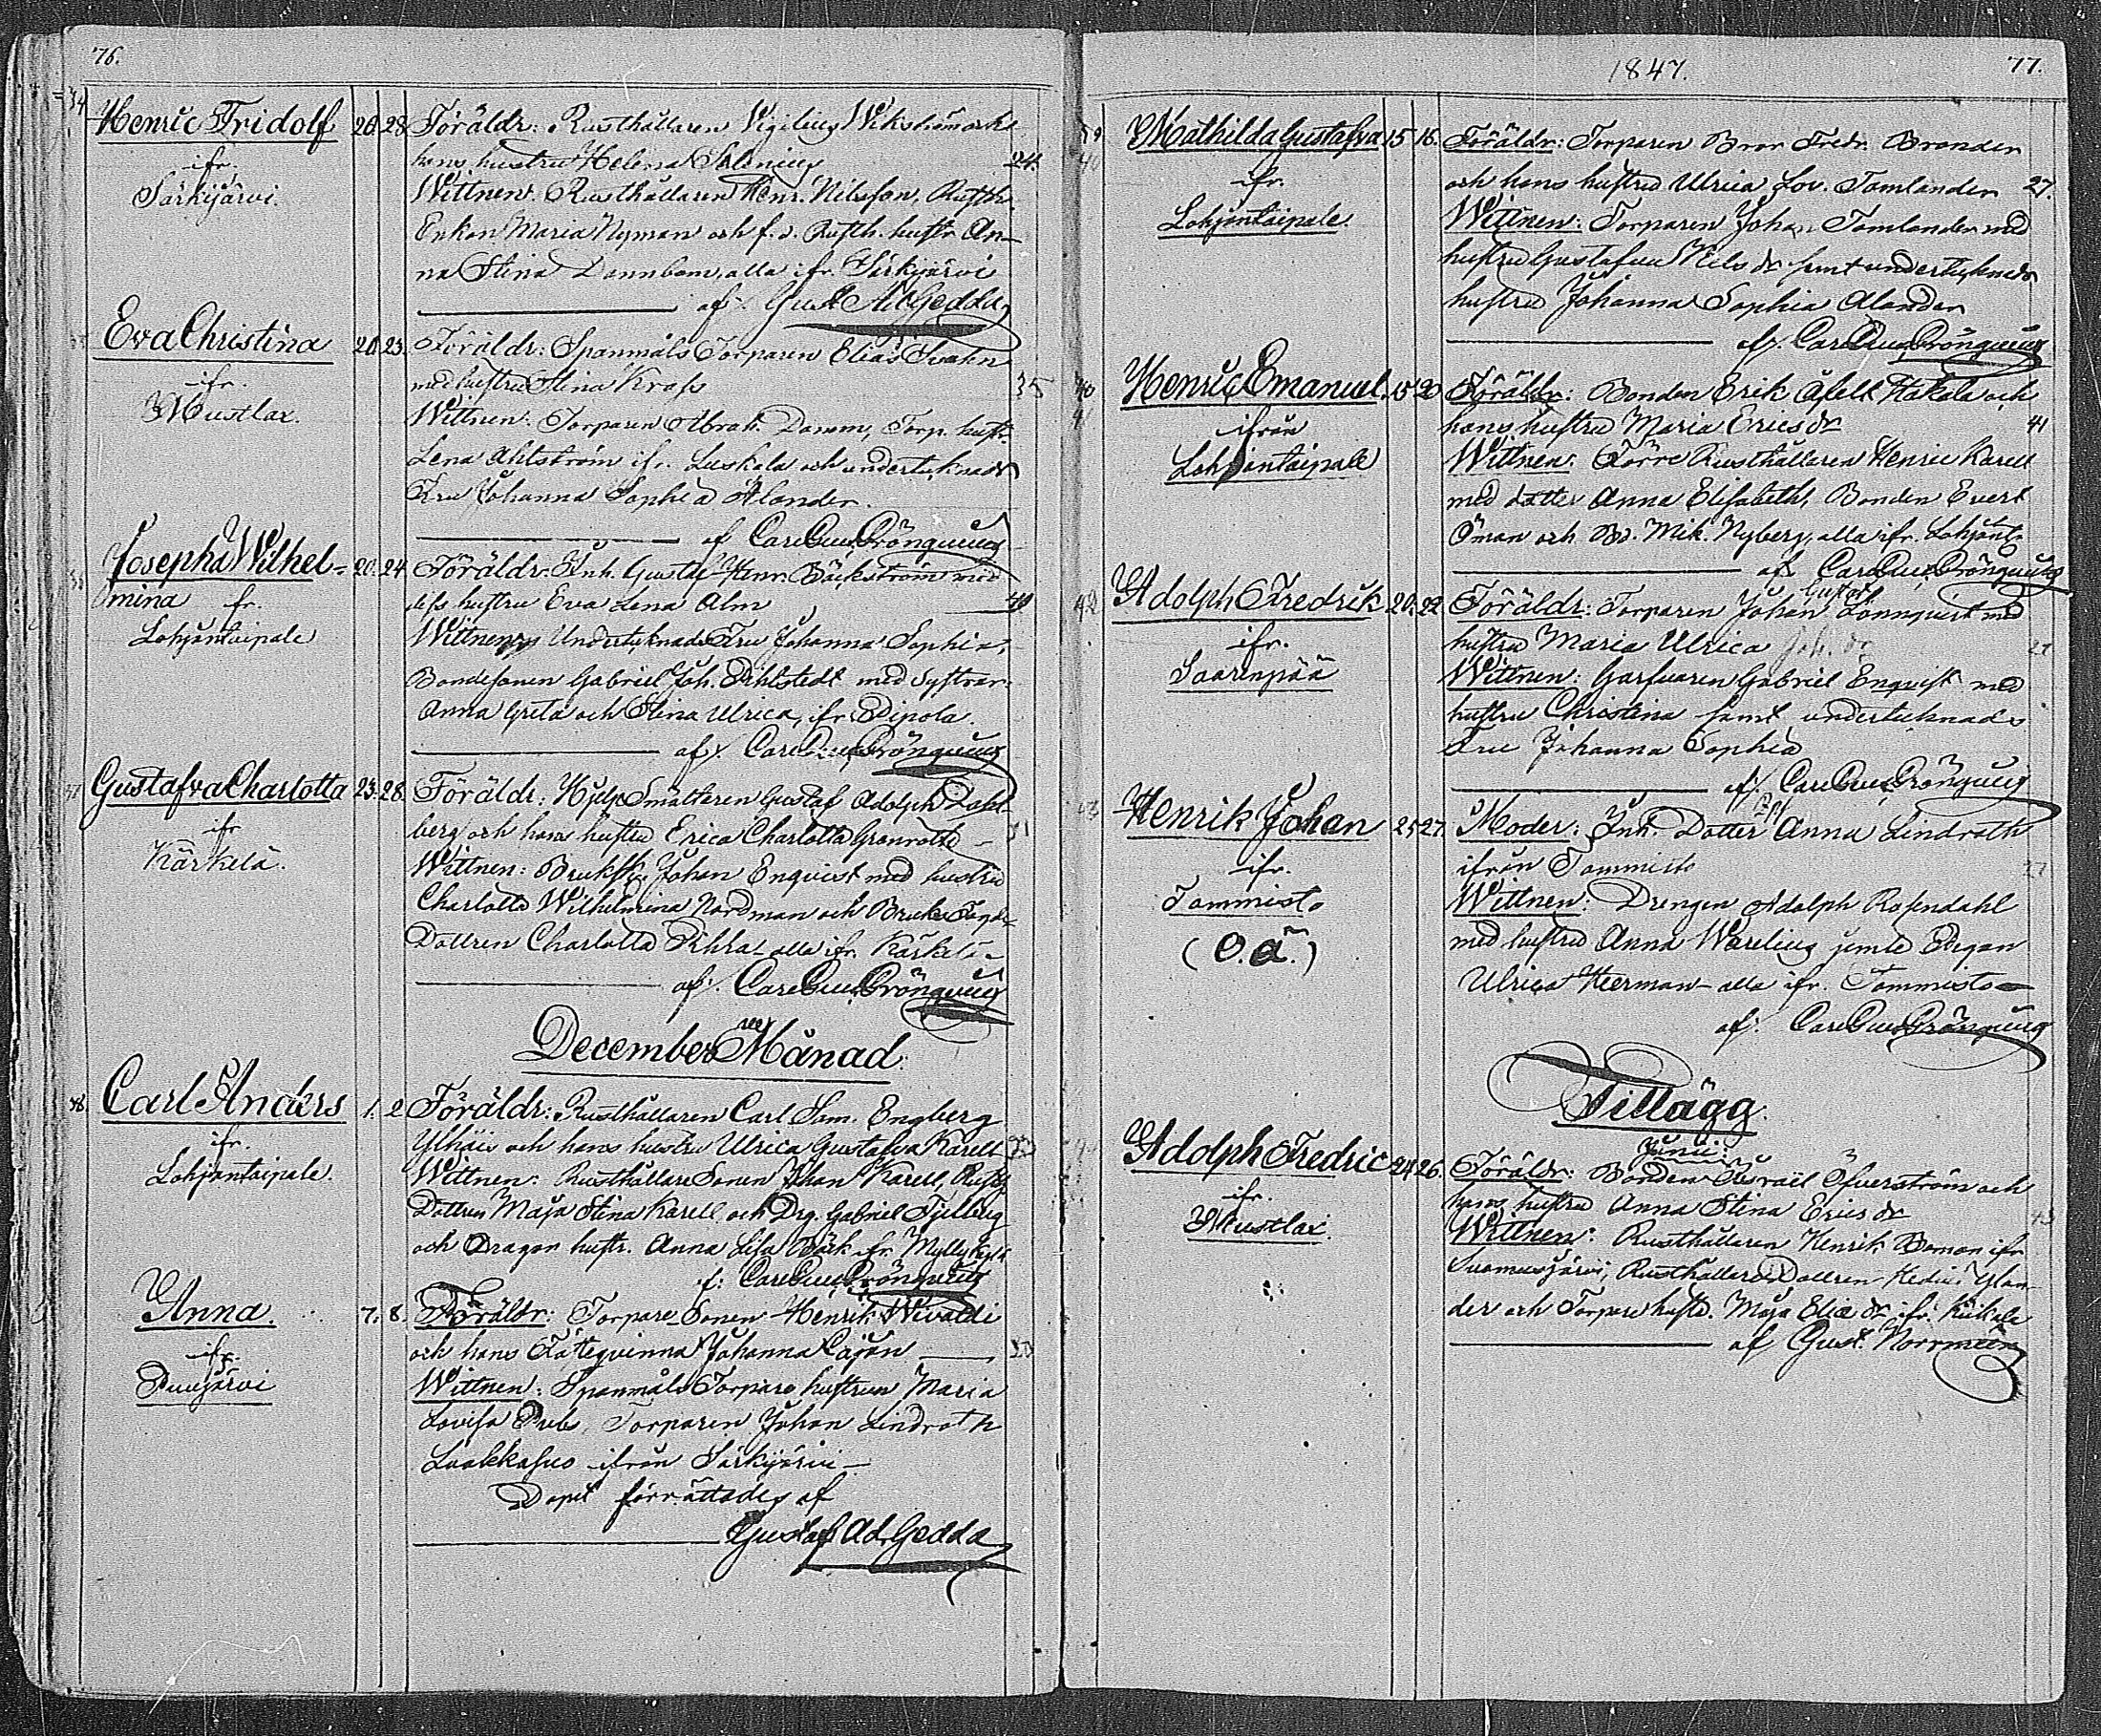 76.
34
Henric Fridolf 20. 28
ifr.
Särkijärvi.
Föräldr: Rusthållaren Vigilius Wikström och
hans hustru Helena Salenius 24.
Wittnen: Rusthållaren Henr. Nilsson, Rusth.
Enkan Maria Nyman och f. d. Rusth. hustr. An-
na Stina Dannbom, alla ifr. Särkijärvi
af: Gust. Ad. Gedda
Eva Christina 20. 23.
ifr.
Mustlax.
Föräldr: Spanmåls Torparen Elias Svahn
med hustru Stina Krass 35
Wittnen: Torparen Abrah. Damm, Torp. hustr.
Lena Ahlström ifr. Luskala och undertecknads
Fru Johanna Sophia Alander.
af Carl Gus. Grönqvist
Josepha Wilhel-
mina 20. 24
fr.
Lohjantaipale
Föräldr: Inh. Gustaf Henr. Bäckström med
dess hustru Eva Lena Alm 40
Wittnen: Undertecknads Fru Johanna Sophia,
Bondesonen Gabriel Joh. Ahlstedt med Systrar:
Anna Greta och Stina Ulrica, ifr. Dipola.
af. Carl Gus. Grönqvist
37
Gustafva Charlotta 23. 28.
ifr
Kärkelä.
Föräldr: Hjelp Smältaren Gustaf Adolph Dahl-
berg och hans hustru Erica Charlotta Granroth 31
Wittnen: Bruks Johan Enqvist med hustru
Charlotta Wilhelmina Nordman och Bruks
Dottren Charlotta alla ifr. Kärkelä
af. Carl Gus. Grönqvist
December Månad.
38.
Carl Anders 1. 2
ifr.
Lohjantaipale.
Föräldr: Rusthållaren Carl Sam. Engberg
Ylhäis och hans hustru Ulrica Gustafva Karell
Wittnen: Rusthållare Sonen Johan Karell, Rusth.
Dottren Maja Stina Karell och Drg. Gabriel
och Dragon hustr. Anna Lisa Bäck ifr. Myllykylä
af: Carl Gus. Grönqvist
Anna. 7. 8.
ifr.
Puujärvi
Föräldr: Torpare Sonen Henrik Wivaldi
och hans Fästeqvinna Johanna Cajan 20
Wittnen: Spanmåls Torpare hustrun Maria
Lovisa Torparen Johan Lindroth
Laakkasuo ifrån Särkijärvi
Dopet förrättades af
Gustaf Ad. Gedda
1847. 77.
39
40
Mathilda Gustafva 15 16.
ifr.
Lohjantaipale.
Föräldr: Torparen Bror Fredr. Brander
och hans hustru Ulrica Lov. Tamlander 27.
Wittnen: Torparen Johan Tamlander med
hustru Gustafva Nils dr samt undertecknads
hustru Johanna Sophia Alander
af. Carl Gus. Grönqvist
40
41
Henric Emanuel. 15 20
ifrån
Lohjantaipale
Föräldr: Bonden Erik Axell Hakala och
hans hustru Maria Erics dr 41
Wittnen: Förre Rusthållaren Henric Karell
med dotter Anna Elisabeth, Bonden Evert
Öman och Bd. Mik. Nyberg, alla ifr. Lohjant.
af Carl Gus. Grönqvist
42
Adolph Fredrik 20. 22
ifr.
Saarenpää
Föräldr: Torparen Johan Gustaf Lönnqvist med
hustru Maria Ulrica Joh. dr 27
Wittnen: Garfvaren Gabriel Enqvist med
hustru Christina samt undertecknads
Fru Johanna Sophia
af. Carl Gus. Grönqvist
43
Henrik Johan 25 27.
ifr.
Tammisto
(O. ä.)
Moder: Inh. Dotter Anna Lindroth
ifrån Tammisto 27
Wittnen: Drengen Adolph Rosendahl
med hustru Anna Warelius jemte Pigan
Ulrica Herman alla ifr. Tammisto
af. Carl Gus. Grönqvist
Tillägg.
Junii:
Adolph Fredric 24 26.
ifr.
Mustlax.
Föräldr: Bonden Israel Öfverström och
hans hustru Anna Stina Erics dr 43
Wittnen: Rusthållaren Henrik Boman ifr
Suomusjärvi, Rusthållare Dottren Hedvig Ylan-
der och Torpare hustr. Maja Elia dr ifr. Kiikala
af Gust. Norrmén